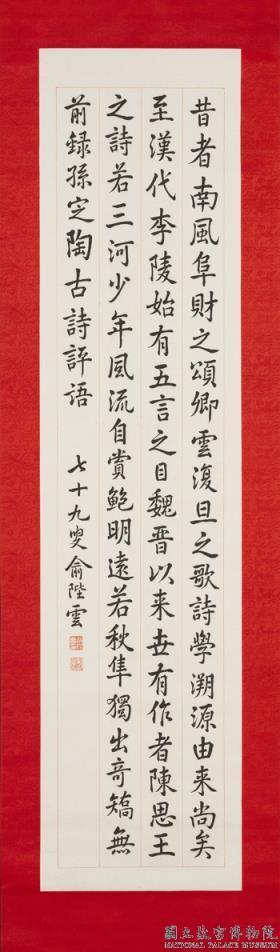 昔者南風阜財之頌卿雲復旦之歌詩學溯源由来尚矣
至漢代李陵始有五言之目魏晋以来世有作者陳思王
之詩若三河少年風流自賞鲍明遠若秋隼獨出竒矯無
前録孫定陶古詩評语
七十九叟俞陛雲
國立故宮博物院
NATIONAL PALACE MUSEUM